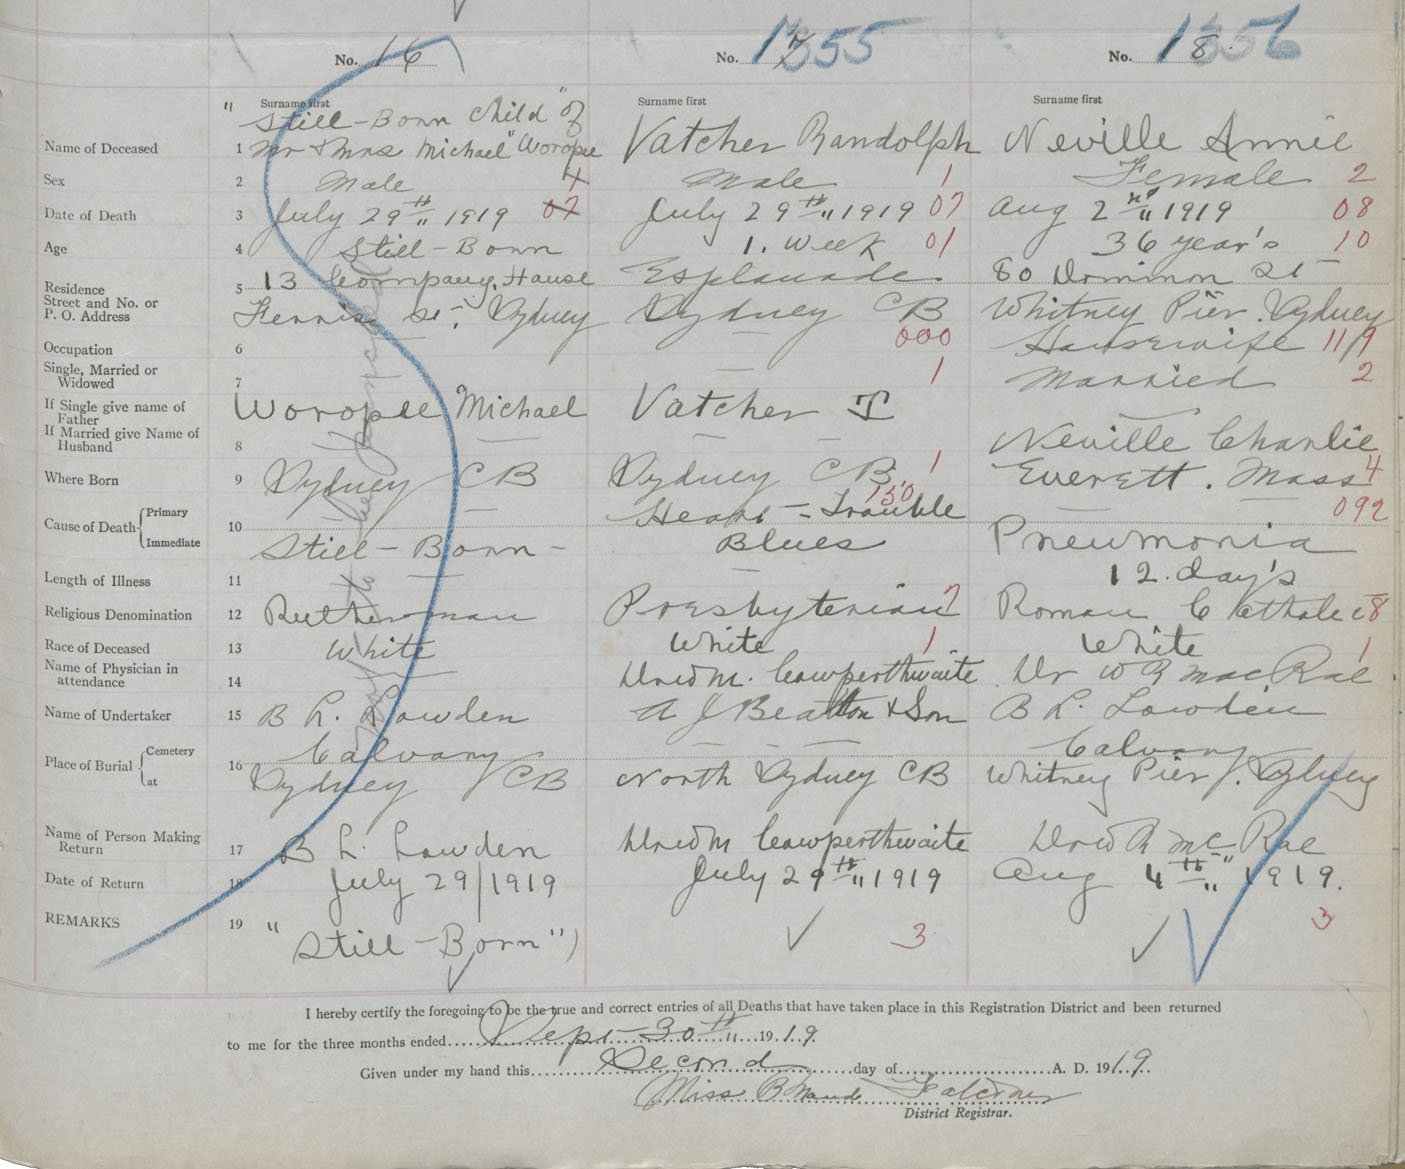 No. 16
No. 17 1355
No. 18 1356
Surname first
Surname first
Surname first
Name of Deceased 1
" Still-Born Child" of
Mr & Mrs Michael" Woropee
Vatcher Randolph
Neville Annie
Sex 2 Male 1 Male 1 Female 2
Date of Death 3 July 29th 1919 07 July 29th 1919 07 Aug 2nd 1919 08
Age 4 Still-Born 1. Week 01 36 year's 10
Residence
Street and No. or
P. O. Address 5
13 Company House
Ferris St, Sydney
Esplanade
Sydney CB
80 Dominion St
Whitney Pier. Sydney
Occupation 6 — 000 Housewife 11/9
Single, Married or
Widowed 7 — 1 Married 2
If Single give name of
Father
Woropee Michael Vatcher J —
If Married give Name of
Husband 8 — — — Neville Charlie
Where Born 9 Sydney CB Sydney CB 1 Everett. Mass 4
Cause of Death Primary 10 — Heart-Trouble 150 — — 092
Immediate Still-Born- Blues Pneumonia
Length of Illness 11 — — 12. day's
Religious Denomination 12 Rutherman Presbyterian 7 Roman Catholic 8
Race of Deceased 13 White White 1 White 1
Name of Physician in
attendance 14 — Dr W M. Cowperthwaite Dr W R MacRae
Name of Undertaker 15 B L. Lowden A J Beatton & Son B L. Lowden
Place of Burial Cemetery 16 Calvary — — — Calvary
at Sydney CB North Sydney CB Whitney Pier. Sydney
Name of Person Making
Return 17 B L. Lowden Dr W M Cowperthwaite Dr W R McRae
Date of Return 18 July 29/1919 July 29th 1919 Aug 4th 1919.
REMARKS 19 " Still-Born") 3 3
not to be
I hereby certify the foregoing to be the true and correct entries of all Deaths that have taken place in this Registration District and been returned
to me for the three months ended Sept-30th 1919.
Given under my hand this Second day of A. D. 1919.
Miss B Maude Falconer
District Registrar.